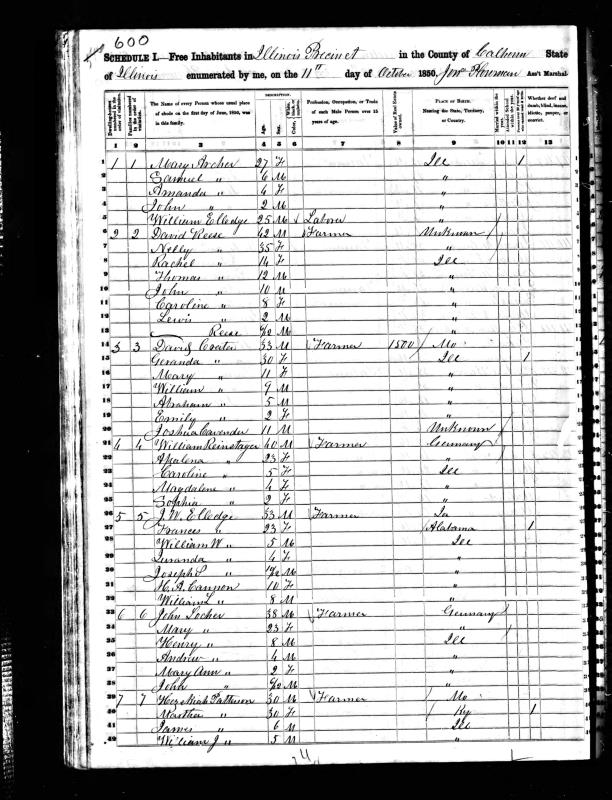 600
SCHEDULE I.—Free Inhabitants in Illinois Precinct in the County of Calhoun State
of Illinois enumerated by me, on the 11th day of October 1850. Ass't Marshal
DESCRIPTION.
The Name of every Person whose usual place of abode on the first day of June, 1850, was in this family.
Age.
Sex.
Profession, Occupation, or Trade of each Male Person over 15 years of age.
Value of Real Estate owned.
PLACE OF BIRTH. Naming the State, Territory, or Country.
Whether deaf and dumb, blind, insane, idiotic, pauper, or convict.
1 2 3 4 5 6 7 8 9 10 11 12 13
1 1 1 Mary Archer 27 F Ill 1
2 Samuel " 6 M "
3 Amanda " 4 F "
4 John " 2 M "
5 William Elledge 25 M Laborer "
6 2 2 David Reese 42 M Farmer Unknown
7 Nelly " 35 F "
8 Rachel " 14 F Ill
9 Thomas " 12 M "
10 John " 10 M "
11 Caroline " 8 F "
12 Lewis " 2 M "
13 Reese /12 M "
14 3 3 David Crater 33 M Farmer 1500 Mo
15 Geranda " 30 F Ill 1
16 Mary " 11 F "
17 William " 9 M "
18 Abraham " 5 M "
19 Emily " 2 F "
20 Joshua Cavender 11 M Unknown
21 4 4 William Reinstager 40 M Farmer Germany
22 " 23 F "
23 Caroline " 5 F Ill
24 Magdalene " 4 F "
25 Sophia " 2 F "
26 5 5 J. W. Elledge 33 M Farmer
27 Frances " 23 F Alabama 1
28 William W " 5 M Ill
29 Luranda " 4 F "
30 Joseph S " /12 M "
31 H. A. Cannon 10 F "
32 William L " 8 M "
33 6 6 John Locher 38 M Farmer Germany
34 Mary " 23 F "
35 Henry " 8 M Ill
36 Andrew " 4 M "
37 Mary Ann " 2 F "
38 John " /12 M "
39 7 7 Hezekiah Patterson 30 M Farmer Mo
40 Martha " 30 F Ky 1
41 James " 6 M Ill
42 William J " 5 M "